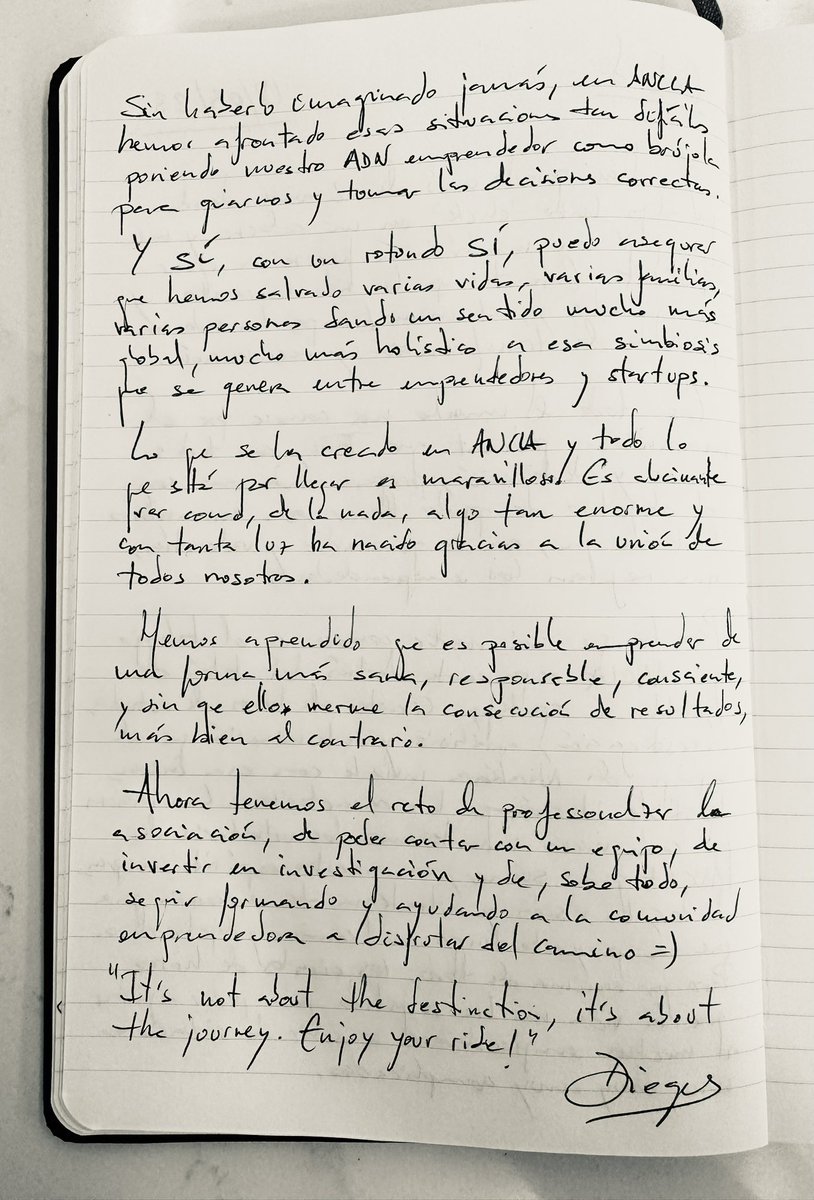 Sin haberlo imaginado jamás, en ANCLA
hemos afrontado esas situaciones tan difíciles
poniendo nuestro ADN emprendedor como brújola
para guiarnos y tomar las decisiones correctas.
Y SÍ, con un rotundo SÍ, puedo asegurar
que hemos salvado varias vidas, varias familias,
varias personas dando un sentido mucho más
global, mucho más holístico a esa simbiosis
que se genera entre emprendedores y startups.
Lo que se ha creado en ANCLA y todo lo
que está por llegar es maravilloso! Es alucinante
ver como, de la nada, algo tan enorme y
con tanta luz ha nacido gracias a la unión de
todos nosotros.
Hemos aprendido que es posible emprender de
una forma más sana, responsable, consciente,
y sin que ello merme la consecución de resultados,
más bien al contrario.
Ahora tenemos el reto de professionalizar la
asociación, de poder contar con un equipo, de
invertir en investigación y de, sobre todo,
seguir formando y ayudando a la comunidad
emprendedora a disfrutar del camino =)
"It's not about the destination, it's about
the journey. Enjoy your ride!"